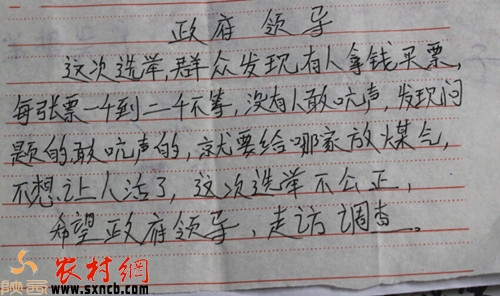 政府领导
这次选举,群众发现有人拿钱买票,
每张票一千到二千不等,没有人敢吭声,发现问
题的敢吭声的,就要给哪家放煤气,
不想让人活了,这次选举不公正,
希望政府领导,走访调查。
陕西
农村網
www.sxncb.com